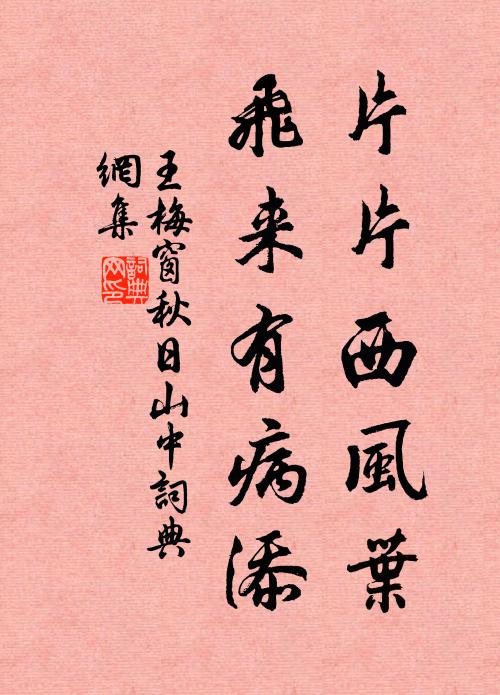 片片西風葉
飛来有病添
王梅窗秋日山中詞典
網集
詞典網印